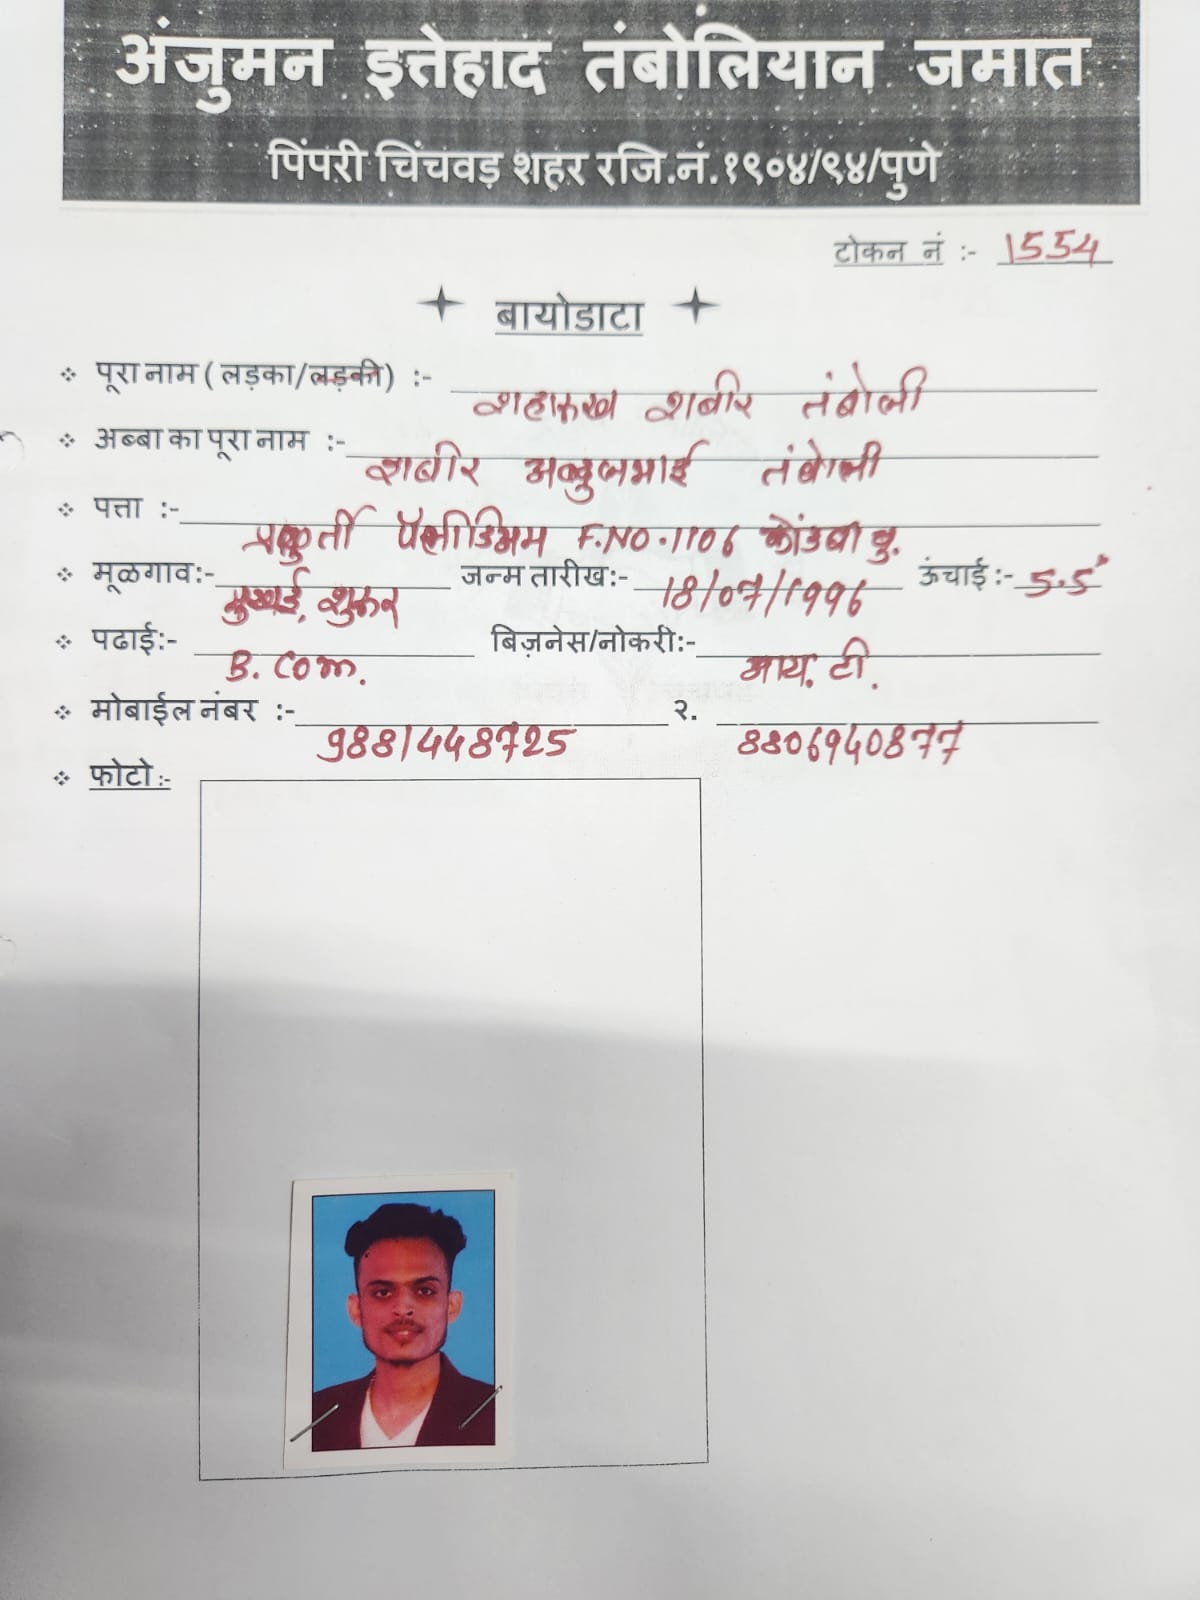 अंजुमन इत्तेहाद तंबोलियान जमात
पिंपरी चिंचवड़ शहर रजि.नं.१९०४/९४/पुणे
टोकन नं :- 1554
बायोडाटा
पूरा नाम ( लड़का/लड़की) :- शहारुख शबीर तंबोली
अब्बा का पूरा नाम :- शबीर अब्दुलभाई तंबोली
पत्ता :- प्रकृर्ती पॅलीडिअम F.NO.1106 कोंढवा बु.
मूळगाव:- जन्म तारीख:- 18/07/1996 ऊंचाई:- 5.5"
पढाई:- B. Com. बिज़नेस/नोकरी:- आय. टी.
मोबाईल नंबर :- 9881448725 २. 8806940877
फोटो:-